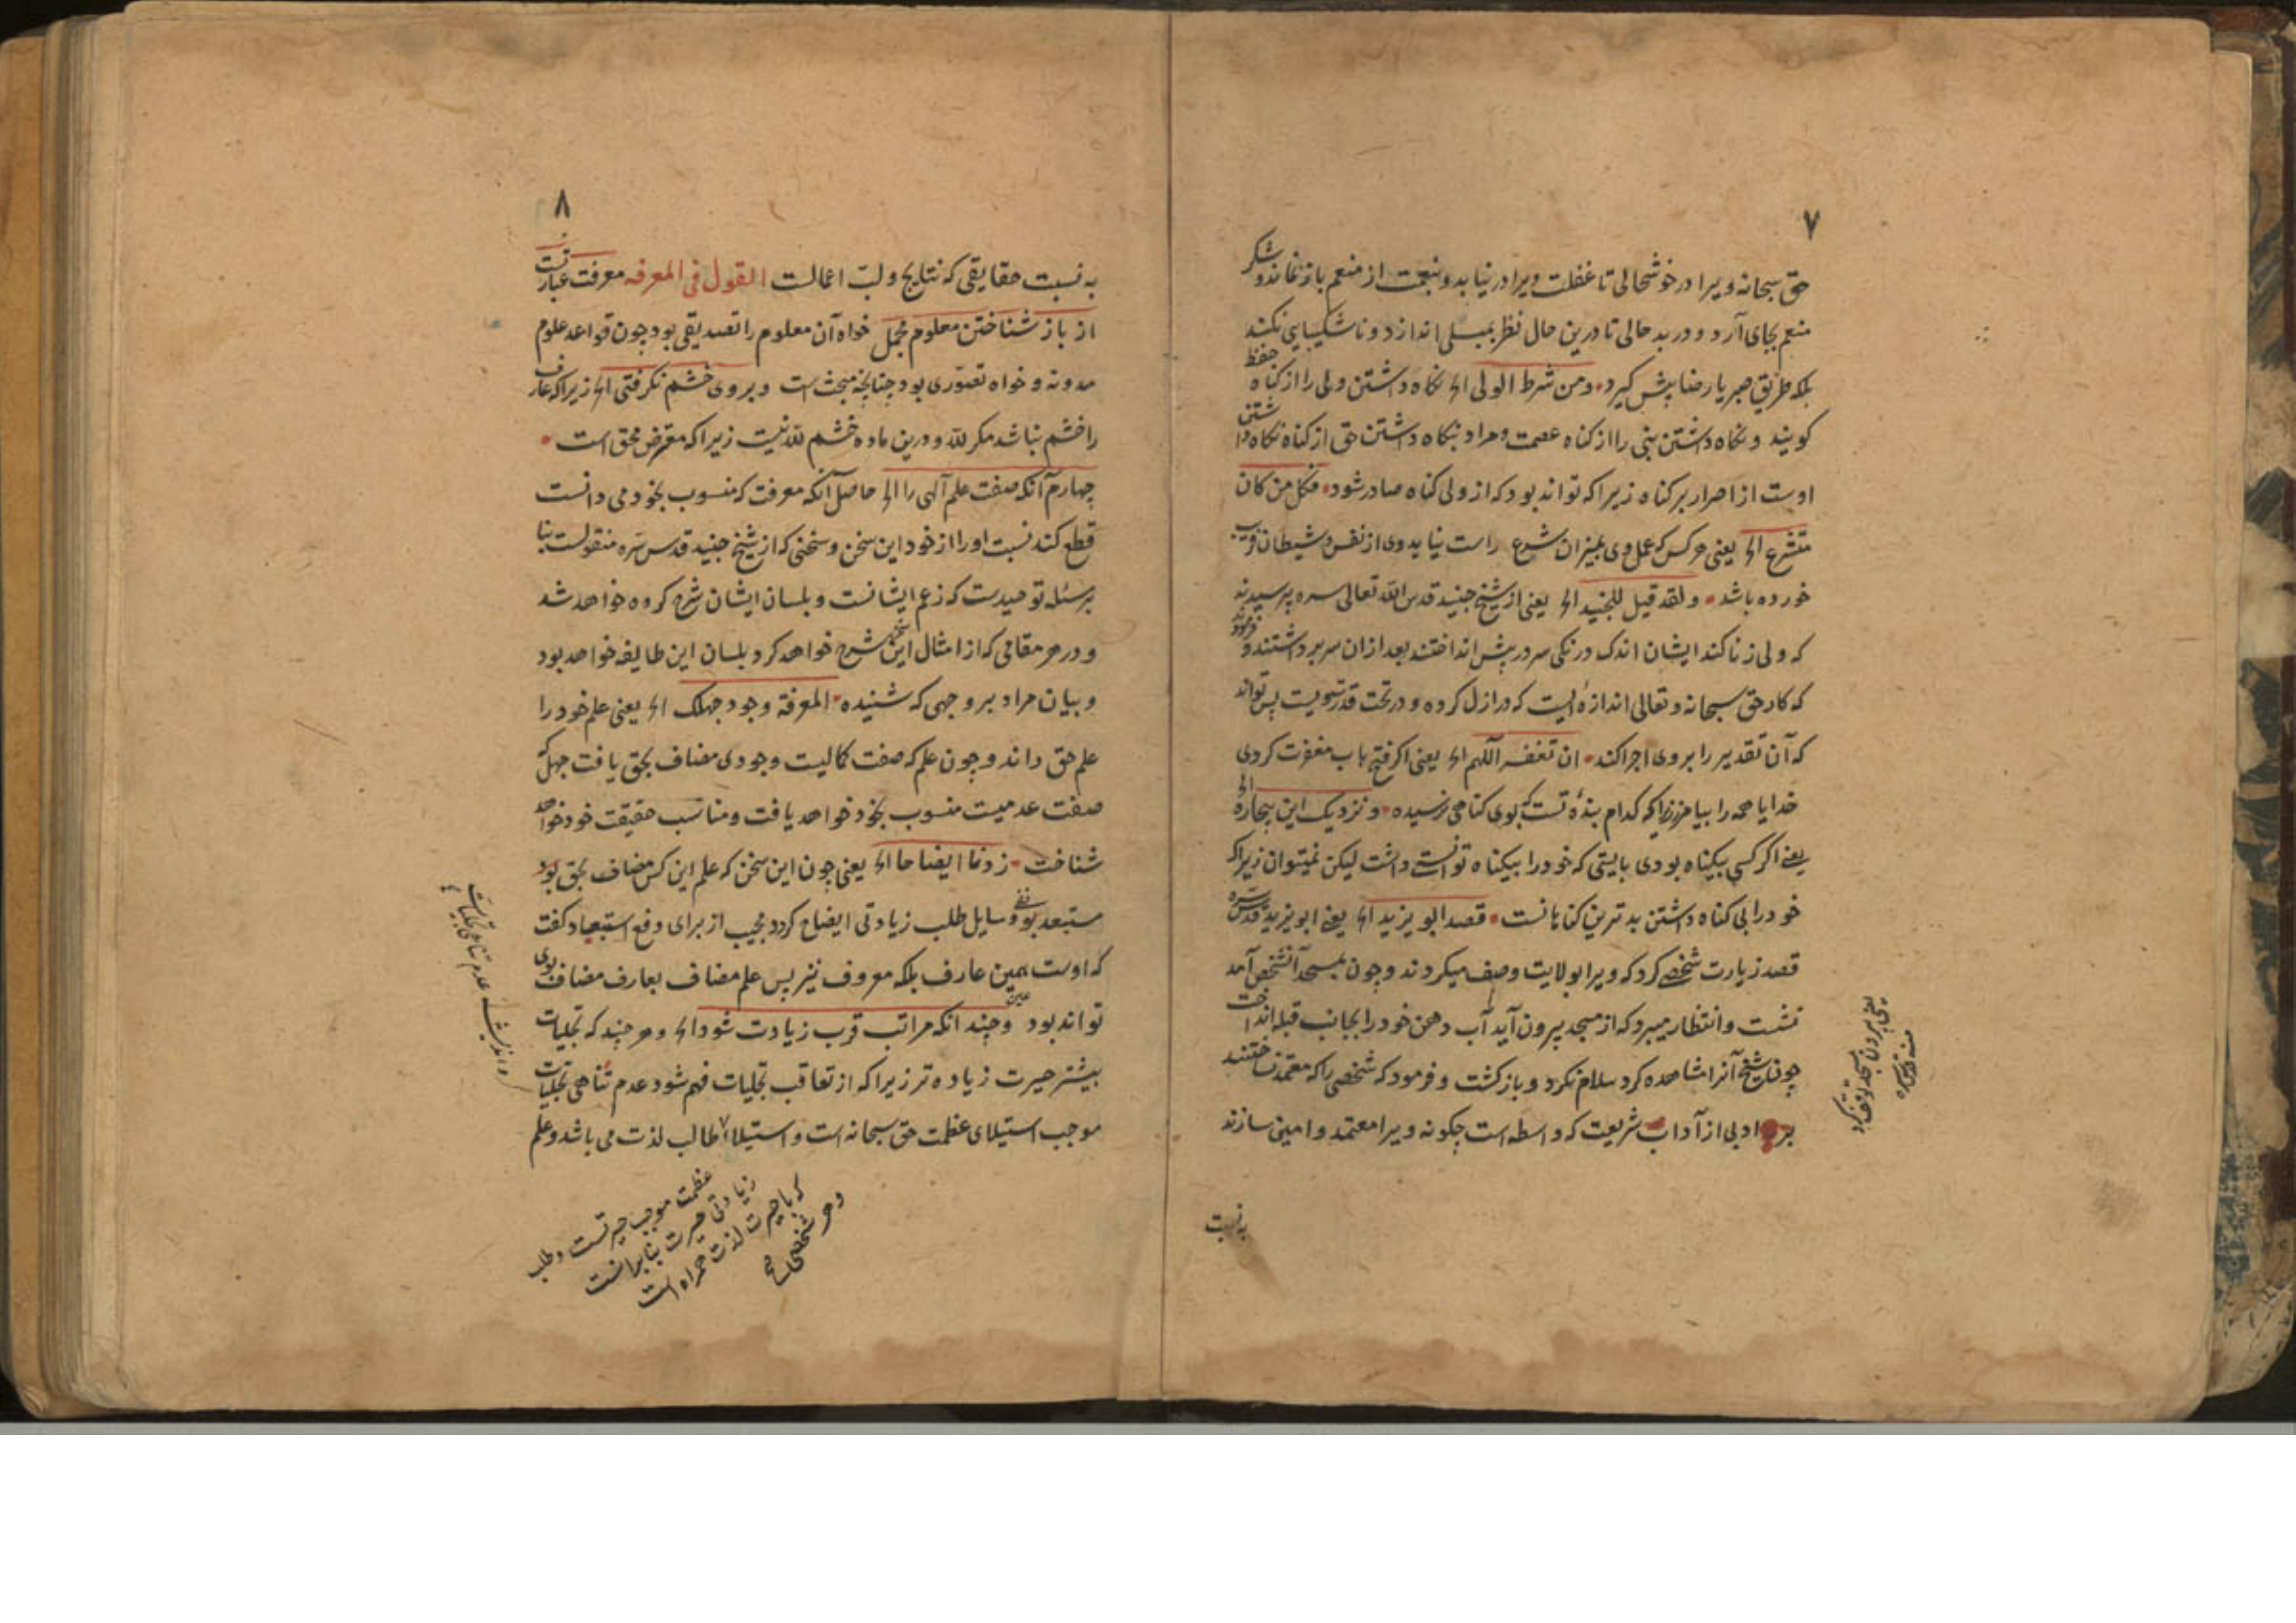 ۷
حق سبحانه ویرا در خوشحالی تا غفلت ویرا در نیابد و بنعمت از منعم باز نماند و شکر
منعم بجای آرد و در بد حالی تا درین حال نظر بمبلی اندازد و ناشکیبایی نکند
بلکه طریق صبر یا رضا پیش کیرد ومن شرط الولی الخ نکاه داشتن ولی را از کناه حفظ
کویند و نکاه داشتن نبی را از کناه عصمت و مراد بنکاه داشتن حق از کناه نکاه داشتن
اوست از اصرار بر کناه زیرا که تواند بود که از ولی کناه صادر شود فکل من کان
متشرع الخ یعنی هر کس که عمل وی بمیزان شرع راست نیاید وی از نفس و شیطان فریب
خورده باشد ولقد قیل للجنید الخ یعنی از شیخ جنید قدس الله تعالی سره پرسیدند
که ولی زنا کند ایشان اندک درنکی سر در پیش انداختند بعد ازان سر برداشتند و فرمودند
که کار حق سبحانه و تعالی اندازه ایست که در ازل کرده و در تحت قدرتویست پس تواند
که آن تقدیر را بروی اجرا کند ان تغفر اللهم الخ یعنی اکر فتح باب مغفرت کردی
خدایا همه را بیامرز زیرا که کدام بندهٔ تست که بوی کناهی نرسیده و نزدیک این بیچاره الخ
یعنی اکر کسی بیکناه بودی بایستی که خود را بیکناه توانستی داشت لیکن نمیتوان زیرا که
خود را بی کناه داشتن بدترین کناهانست قصد ابو یزید الخ یعنی ابو یزید قدس سره
قصد زیارت شخصی کرد که ویرا بولایت وصف میکردند و چون بمسجد آنشخص آمد
نشست و انتظار میبرد که از مسجد بیرون آید آب دهن خود را بجانب قبله انداخت
چون شیخ آنرا مشاهده کرد سلام نکرد و باز کشت و فرمود که شخصی را که معتمد نساختند
بر ادبی از آداب شریعت که واسطه است چکونه ویرا معتمد و امین سازند
به نسبت
یعنی بیرون مسجد توقف کرد
منه قدس سره
۸
به نسبت حقایقی که نتایج و لب اعمالست القول فی المعرفه معرفت عبارتست
از باز شناختن معلوم مجمل خواه آن معلوم را تصدیقی بود چون قواعد علوم
مدونه و خواه تصوری بود چنانچه مبحث است و بروی خشم نکرفتی الخ زیرا که عارف
را خشم نباشد مکر لله و درین ماده خشم لله نیست زیرا که معترض محق است
چهارم آنکه صفت علم آلهی را الخ حاصل آنکه معرفت که منسوب بخود می دانست
قطع کند نسبت او را از خود این سخن و سخنی که از شیخ جنید قدس سره منقولست بنا
بر مسئله توحیدست که زعم ایشانست و بلسان ایشان شرح کرده خواهد شد
و در هر مقامی که از امثال این سخن شرح خواهد کرد بلسان این طایفه خواهد بود
و بیان مراد بر وجهی که شنیده المعرفة وجود جهلک الخ یعنی علم خود را
علم حق داند و چون علم که صفت کمالیت وجودی مضاف بحق یافت جهل که
صفت عدمیت منسوب بخود خواهد یافت و مناسب حقیقت خود خواهد
شناخت زدنا ایضاحا الخ یعنی چون این سخن که علم این کس مضاف بحق بود
مستبعد بود سایل طلب زیادتی ایضاح کرد و مجیب از برای دفع استبعاد کفت
که اوست همین عارف بلکه معروف نیز پس علم مضاف بعارف مضاف بوی
تواند بود و چند انکه مراتب قرب زیادت شود الخ و هر چند که تجلیات
بیشتر حیرت زیاده تر زیرا که از تعاقب تجلیات فهم شود عدم تناهی تجلیات
موجب استیلای عظمت حق سبحانه است و استیلا طالب لذت می باشد و علم
عظمت موجب حیرتست و طلب
زیادتی حیرت بنابرانست
که با حیرت لذت همراه است
و هر شخصی
عدم تناهی تجلیات